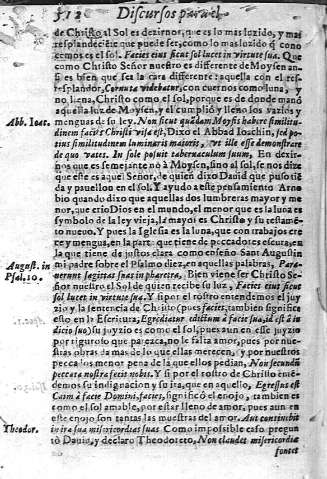 512 Discursos para el
de Christo al Sol es dezirnos, que es lo mas luzido, y mas
resplandeciēte que puede ser, como lo mas luzido q̃ cono
cemos es el sol. Facies eius sicut sol lucet in virtute sua. Que
como Christo Señor nuestro es differente de Moysen an
si es bien que sea la cara differente: aquella con el res-
resplandor, Cornuta videbatur, con cuernos como luna, y
no llena, Christo como el sol, porque es de donde manò
aquella luz de Moysen, y el cumpliò y lleno los vazios y
Abb. Ioac.
menguas de su ley. Non sicut quādam Moysis habere similitu
dinem facies Christi visa est, Dixo el Abbad Ioachin, sed po
tius similitudinem luminaris maioris, vt ille esse demonstrare
de quo vates. In sole posuit tabernaculum suum. En dezir
nos que es semejante no à Moysen, sino al sol, se nos dize
que este es aquel Señor, de quien dixo Dauid que puso tiē
da y pauellon en el sol. Y ayuda a este pensamiento Arno
bio quando dize que aquellas dos lumbreras mayor y me
nor, que crio Dios en el mundo, el menor que es la luna es
symbolo de la ley vieja, la mayor es Christo y su testamē
to nueuo. Y pues la Iglesia es la luna, que con trabajos cre
ce y mengua, en la part que tiene de peccadores escura, en
la que tiene de justos clara como enseño Sant Augustin
August. in
Psal. 10.
mi padre sobre el Psalmo diez, en aquellas palabras, Para-
uerunt sagittas suas in pharetra, Bien viene ser Christo Se
ñor nuestro el Sol de quien recibe su luz, Facies eius sicut
sol lucet in virtute sua. Y si por el rostro entendemos el juy
zio y la sentencia de Christo (pues facies, tambien significa
esto en la Escritura, Egrediatur
su juyzio es como el sol, pues aun en esse juyzio
por riguroso que parezca, no le falta amor, pues por nue
stras obras da mas de lo que ellas merecen, y por nuestros
peccados menor pena de la que ellos pedian, Non secundū
peccata nostra fecit nobis. Y si por el rostro de Christo entē
demos su indignacion y su ira, que en aquello, Egressus est
Cain à facie Domini, facies, significò el enojo, tambien es
como el sol amable, por estar lleno de amor, pues aun en
este enojo son tantas las muestras del amor. Aut continebit
Theodor.
in ira sua misericordias suas. Como impossible caso pregun
tò Dauid, y declarò Theodoreto, Non claudet misericordiæ
fontet